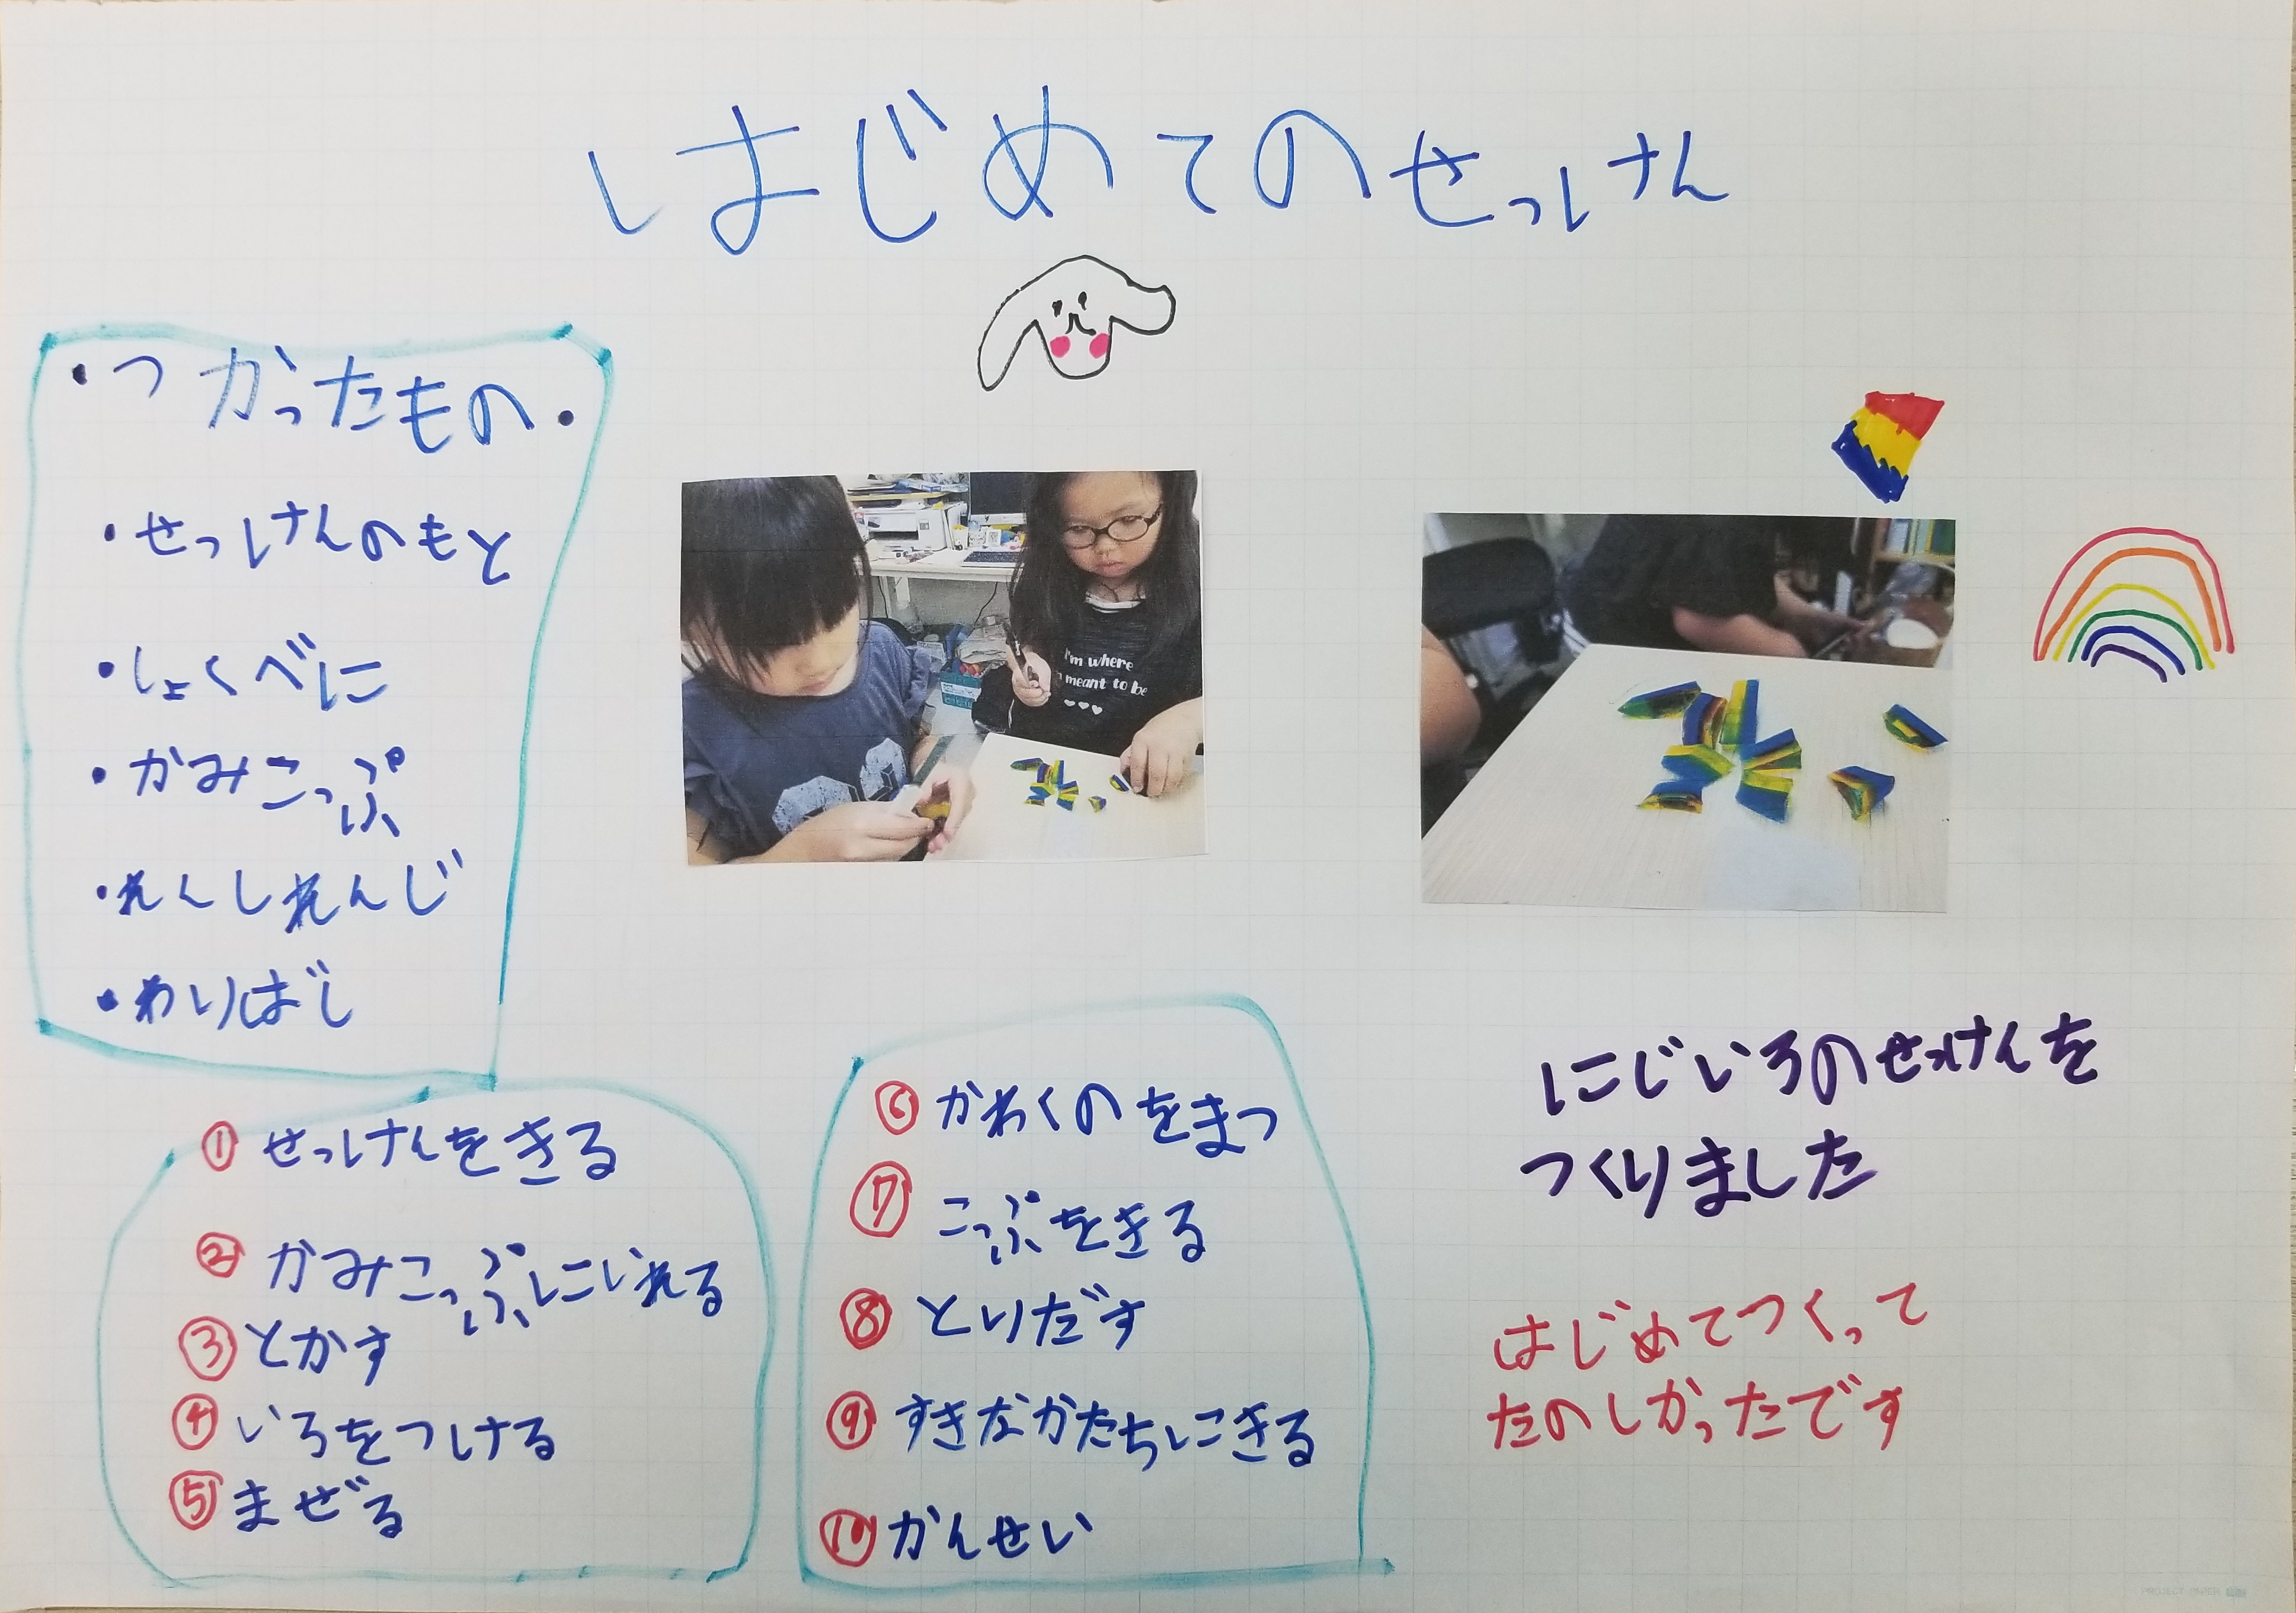 はじめてのせっけん
・つかったもの・
・せっけんのもと
・しょくべに
・かみこっぷ
・れんしれんじ
・わりばし
I'm where
meant to be
①せっけんをきる
②かみこっぷにいれる
③とかす
④いろをつける
⑤まぜる
⑥かわくのをまつ
⑦こっぷをきる
⑧とりだす
⑨すきなかたちにきる
⑩かんせい
にじいろのせっけんを
つくりました
はじめてつくって
たのしかったです
PROJECT PAPER